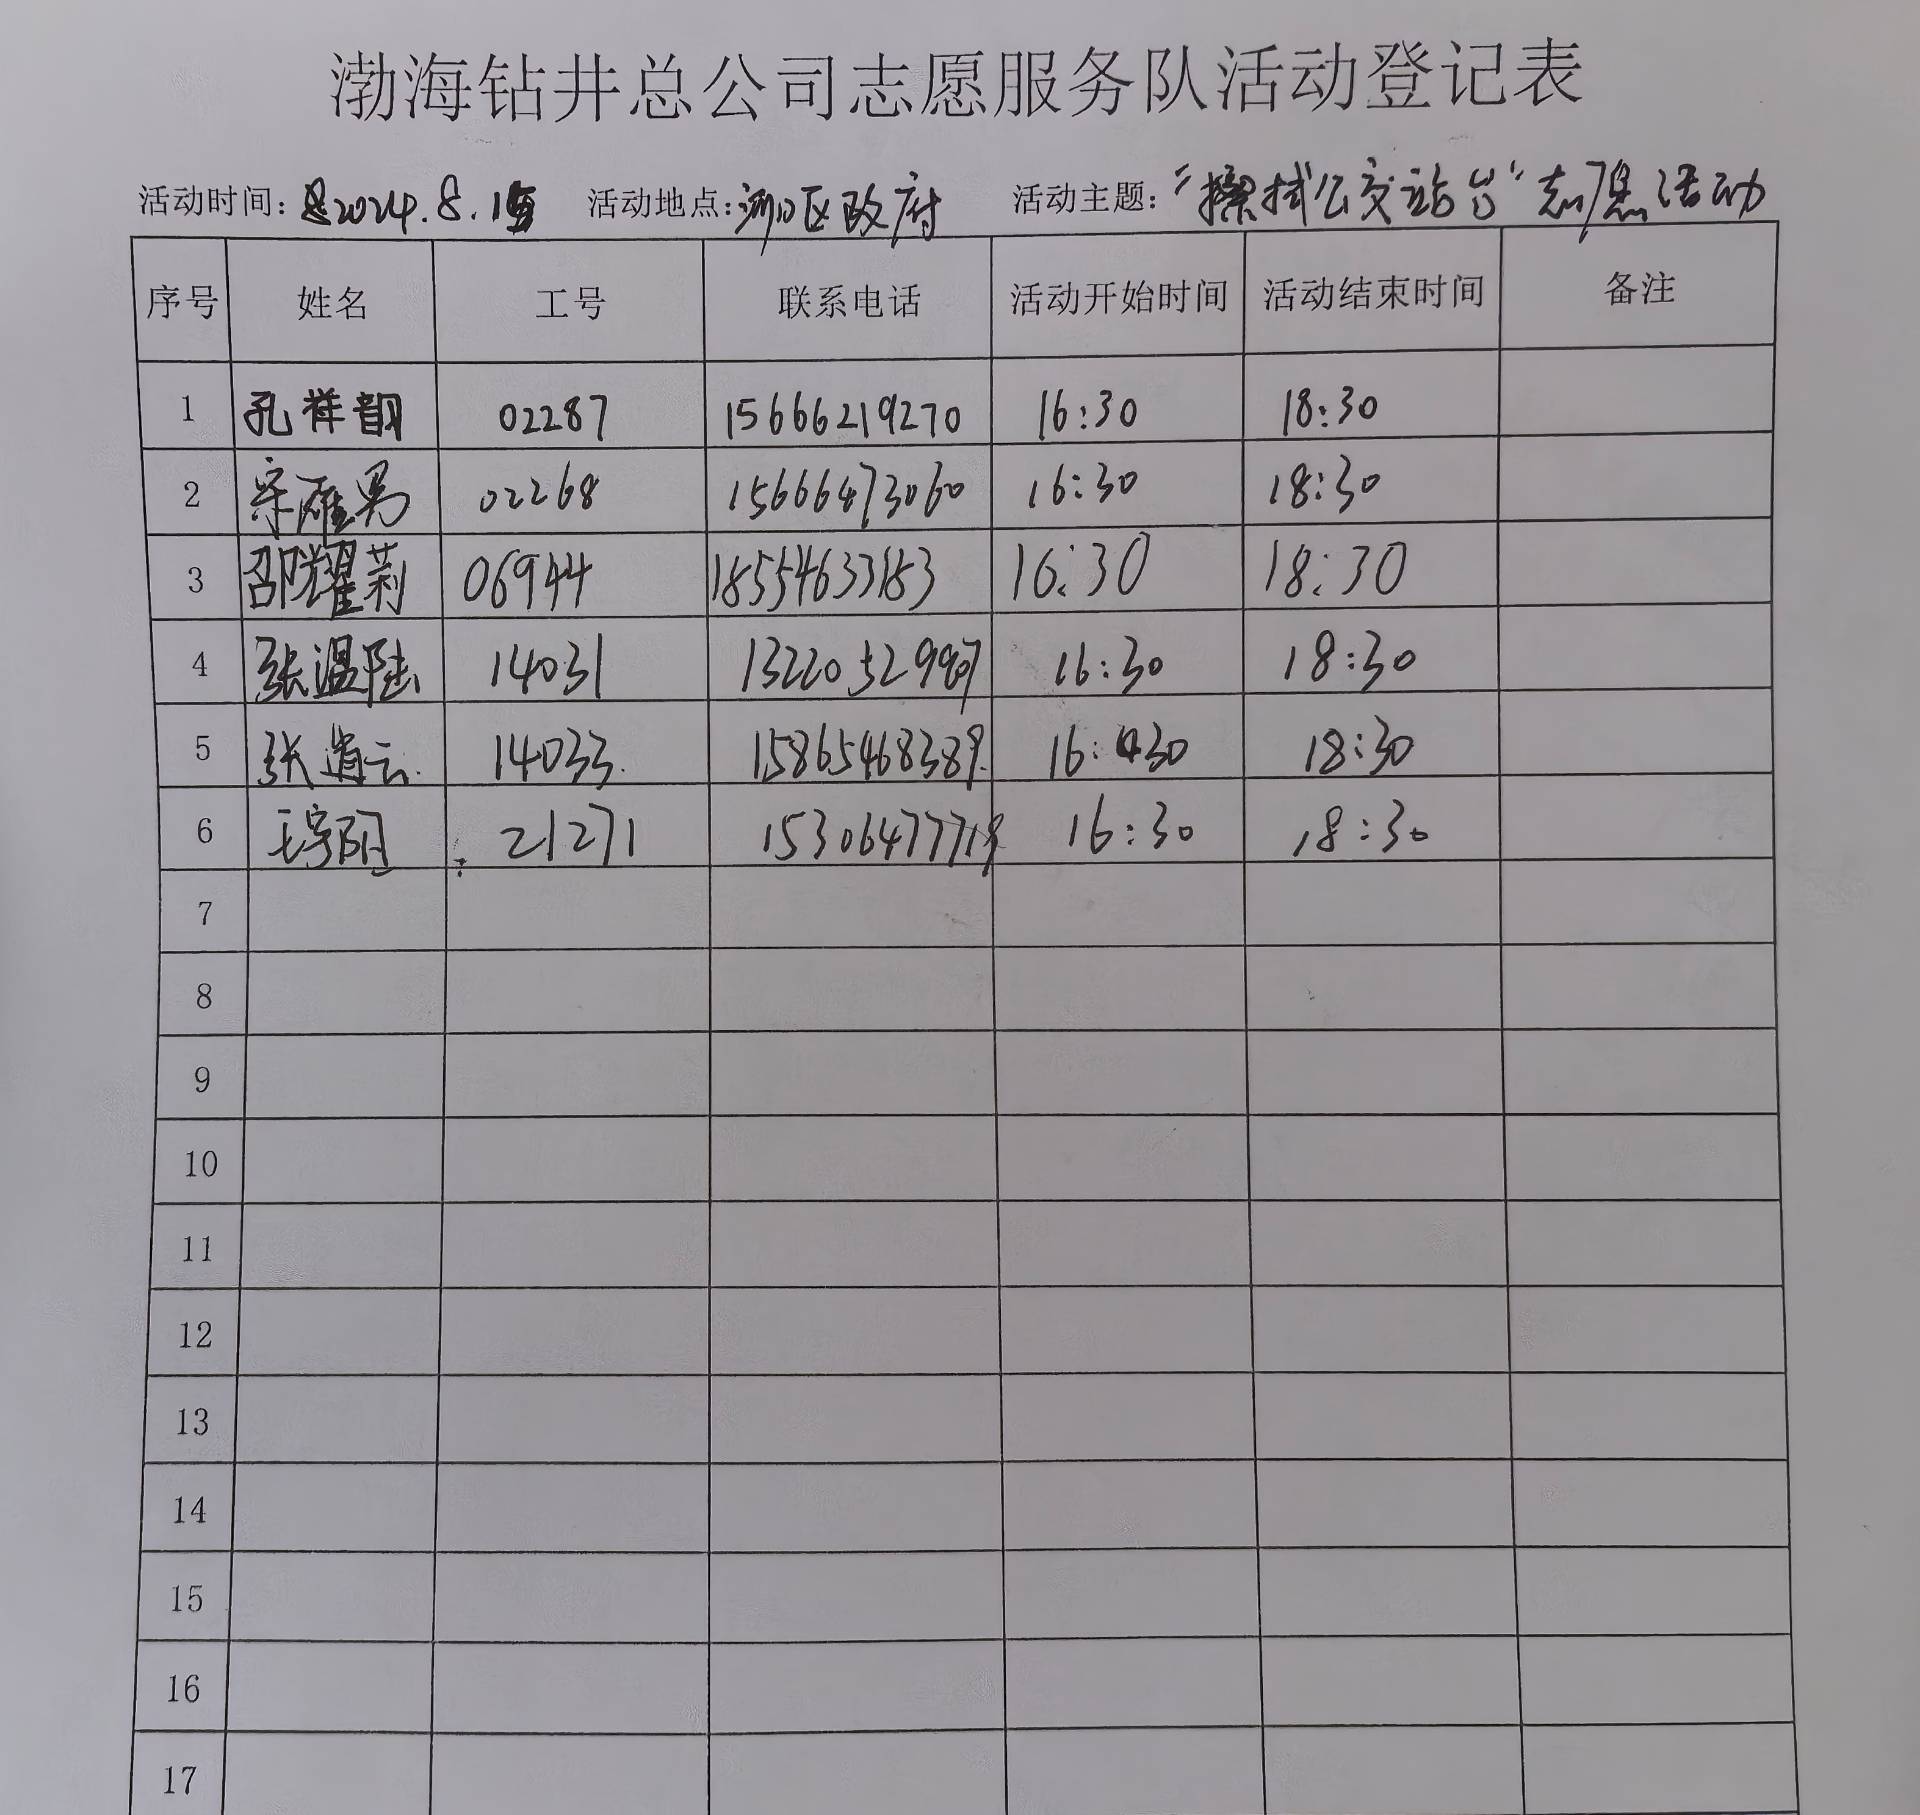 渤海钻井总公司志愿服务队活动登记表
活动时间: 2024.8.15 活动地点: 河口区政府 活动主题: “擦拭公交站台”志愿活动
序号 姓名 工号 联系电话 活动开始时间 活动结束时间 备注
1 孔祥 02287 15666219270 16:30 18:30
2 宋雁男 02268 15666473060 16:30 18:30
3 邵耀莉 06944 18554633183 16:30 18:30
4 张温陆 14031 16:30 18:30
5 张道云 14033 15865468389 16:30 18:30
6 王宇阳 21271 15306477719 16:30 18:30
7
8
9
10
11
12
13
14
15
16
17